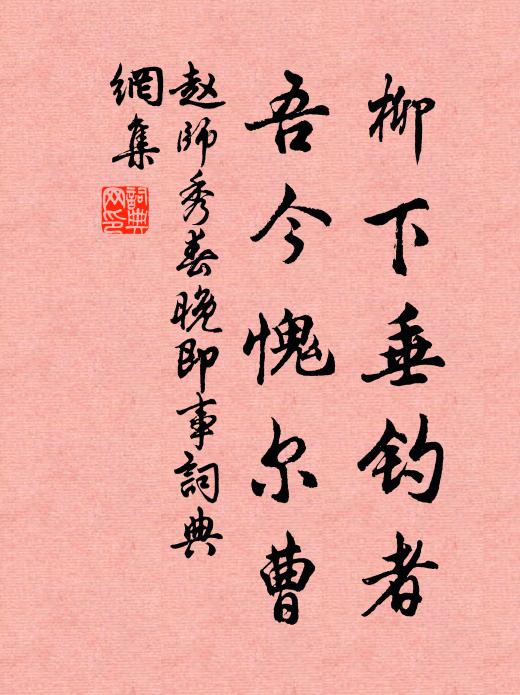 柳下垂钓者
吾今愧尔曹
赵師秀春晚即事詞典
網集
詞典网印